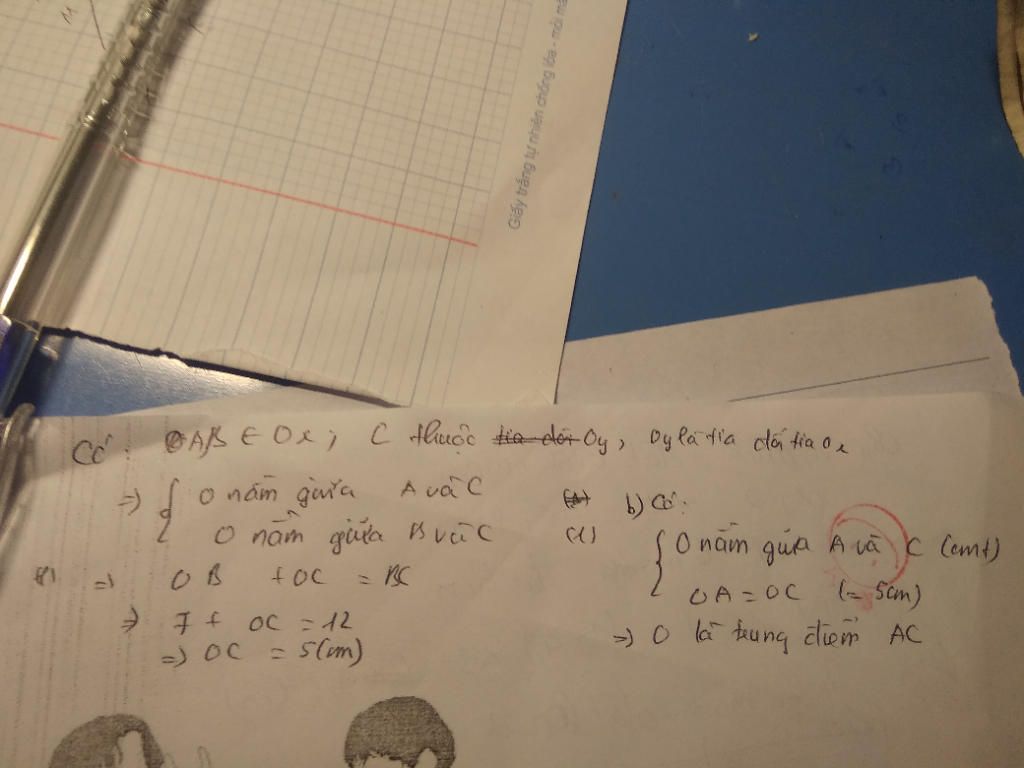 Giấy trắng tự nhiên chống lóa - mỏi
Có: A,B ∈ Ox; C thuộc tia đối Oy, Oy là tia đối tia Ox
=> { O nằm giữa A và C
O nằm giữa B và C
=> OB + OC = BC
=> 7 + OC = 12
=> OC = 5(cm)
b) Có:
{ O nằm giữa A và C (cmt)
OA = OC (= 5cm)
=> O là trung điểm AC